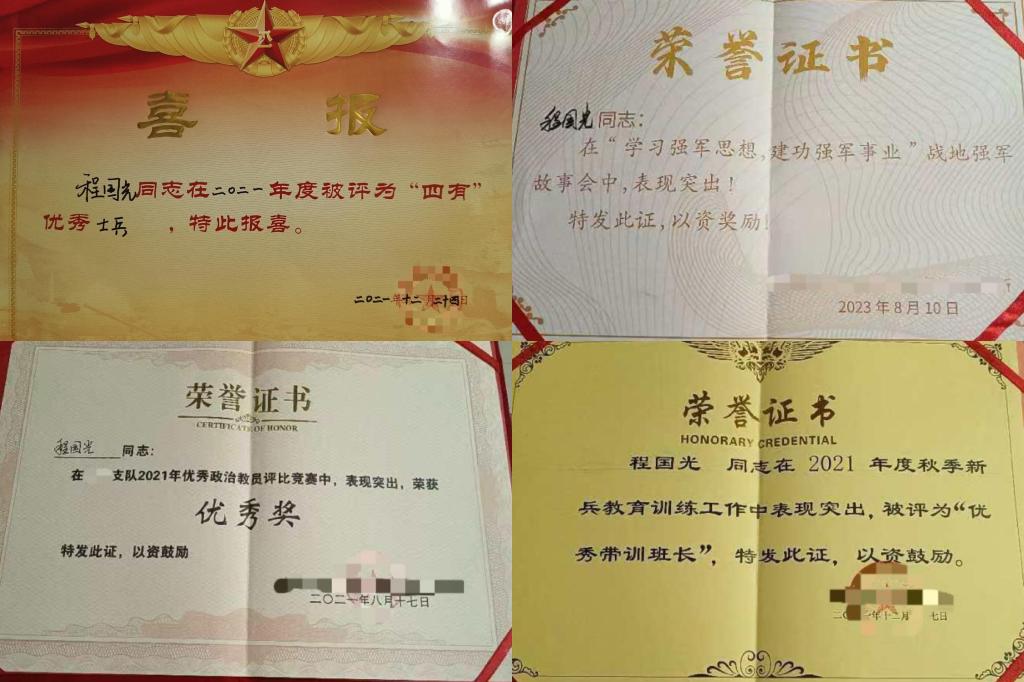 喜报
程国光同志在二〇二一年度被评为“四有”
优秀士兵，特此报喜。
二〇二一年十二月二十四日
荣誉证书
程国光同志：
在“学习强军思想，建功强军事业”战地强军
故事会中，表现突出！
特发此证，以资奖励！
2023年8月10日
荣誉证书
CERTIFICATE OF HONOR
程国光同志：
在 支队2021年优秀政治教员评比竞赛中，表现突出，荣获
优秀奖
特发此证，以资鼓励
二〇二一年八月十七日
荣誉证书
HONORARY CREDENTIAL
程国光 同志在 2021 年度秋季新
兵教育训练工作中表现突出，被评为“优
秀带训班长”，特发此证，以资鼓励。
二〇二一年十二月 七日